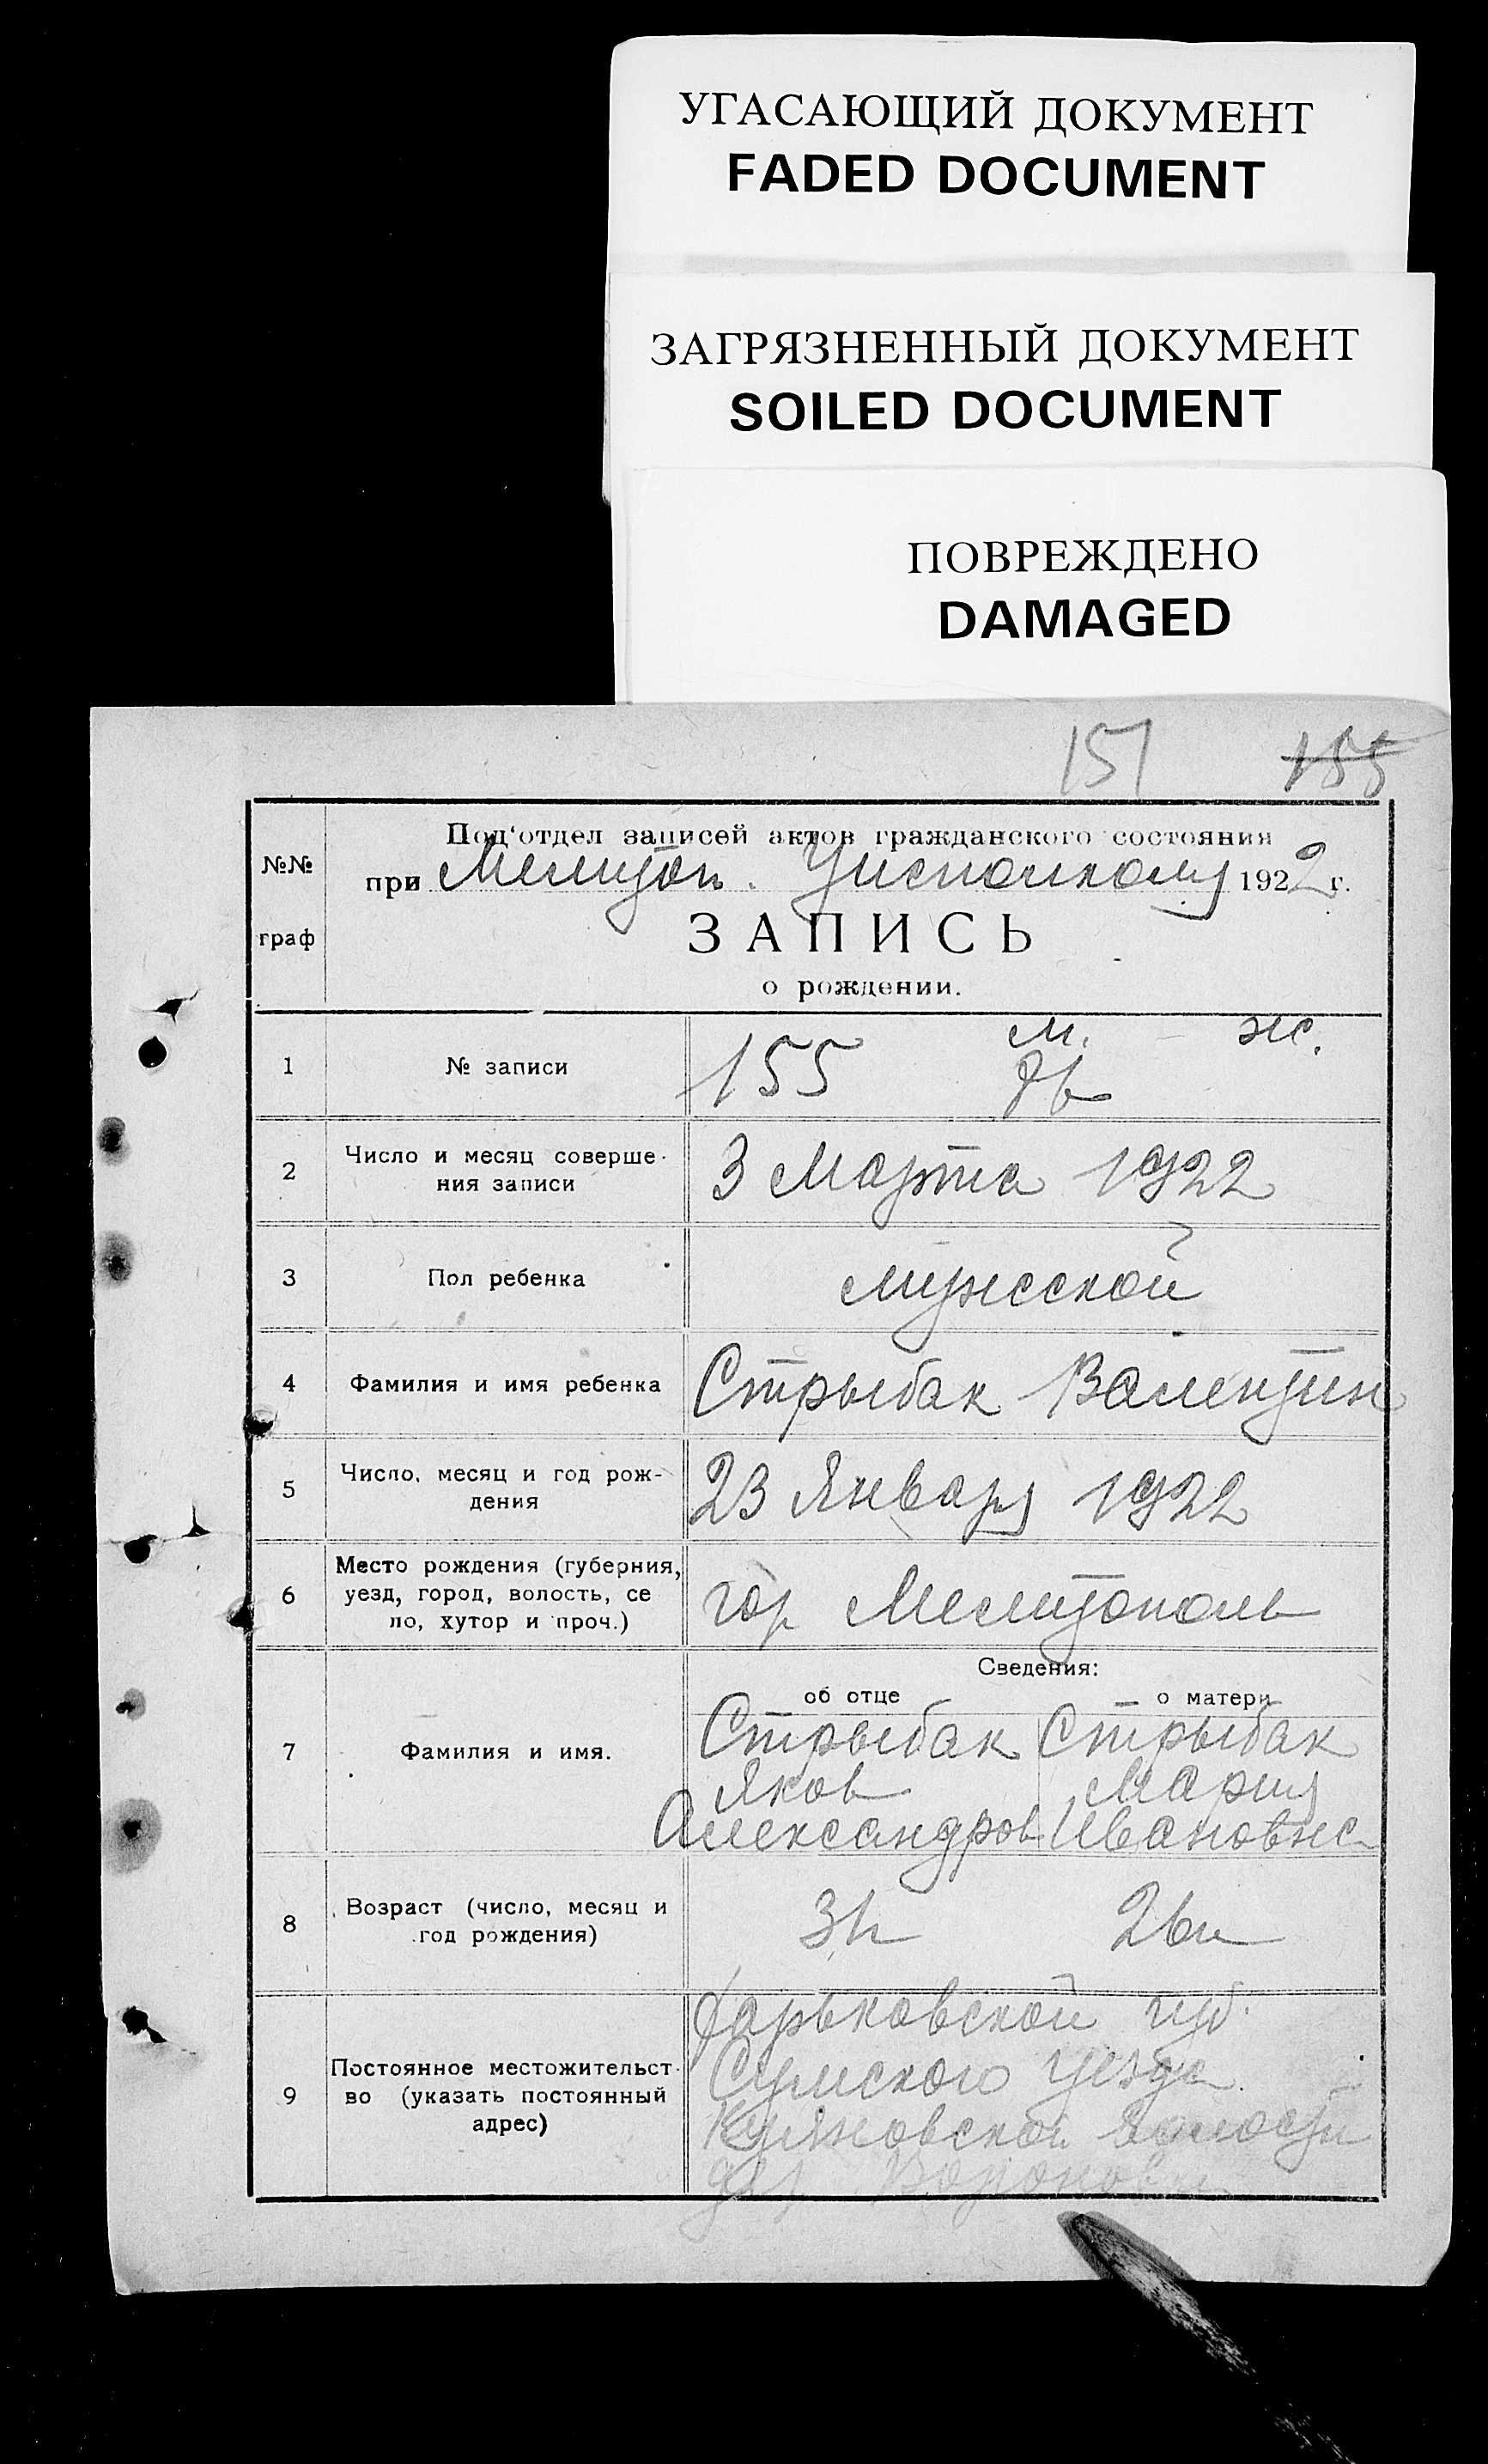 УГАСАЮЩИЙ ДОКУМЕНТ
FADED DOCUMENT
ЗАГРЯЗНЕННЫЙ ДОКУМЕНТ
SOILED DOCUMENT
ПОВРЕЖДЕНО
DAMAGED
151 155
№№ граф
Под'отдел записей актов гражданского состояния
при Мелитоп. Уисполкому 1922 г.
ЗАПИСЬ
о рождении.
м. ж.
1 № записи 155
2 Число и месяц соверше-
ния записи 3 Марта 1922
3 Пол ребенка мужеской
4 Фамилия и имя ребенка Стрыбак Валентин
5 Число, месяц и год рож-
дения 23 Января 1922
6 Место рождения (губерния,
уезд, город, волость, се
ло, хутор и проч.) гор Мелитополь
Сведения:
об отце о матери
7 Фамилия и имя. Стрыбак Стрыбак
Яков Мария
Александров Ивановна
8 Возраст (число, месяц и
год рождения)
9 Постоянное местожительст-
во (указать постоянный
адрес)
Харьковской губ.
Сумского уезда
волости
дер.